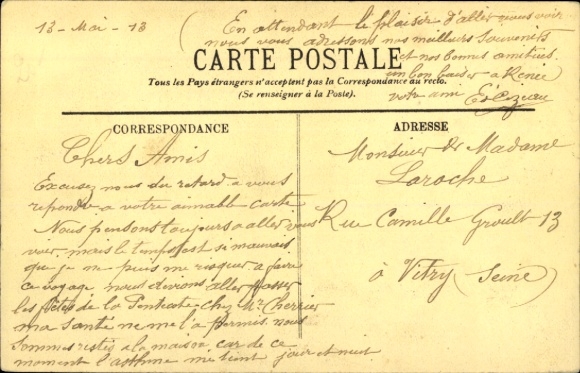 13 - Mai - 13
(En attendant le plaisir d'aller vous voir
nous vous adressons nos meilleurs souvenirs
et nos bonnes amitiés.
un bon baiser a Renée
votre ami
CARTE POSTALE
Tous les Pays étrangers n'acceptent pas la Correspondance au recto.
(Se renseigner à la Poste).
CORRESPONDANCE
Chers Amis
Excusez nous du retard a vous
repondre a votre aimable carte
Nous pensons toujours a aller vous
voir mais le temps est si mauvais
que je ne puis me risquer a faire
ce voyage nous devions aller passer
les fêtes de la Pentecote chez Mr Cherrier
ma santé ne me l'a permis. nous
sommes restés a la maison car de ce
moment l'asthme me tient jour et nuit
ADRESSE
Monsieur & Madame
Laroche
Rue Camille Groult 13
à Vitry (Seine)